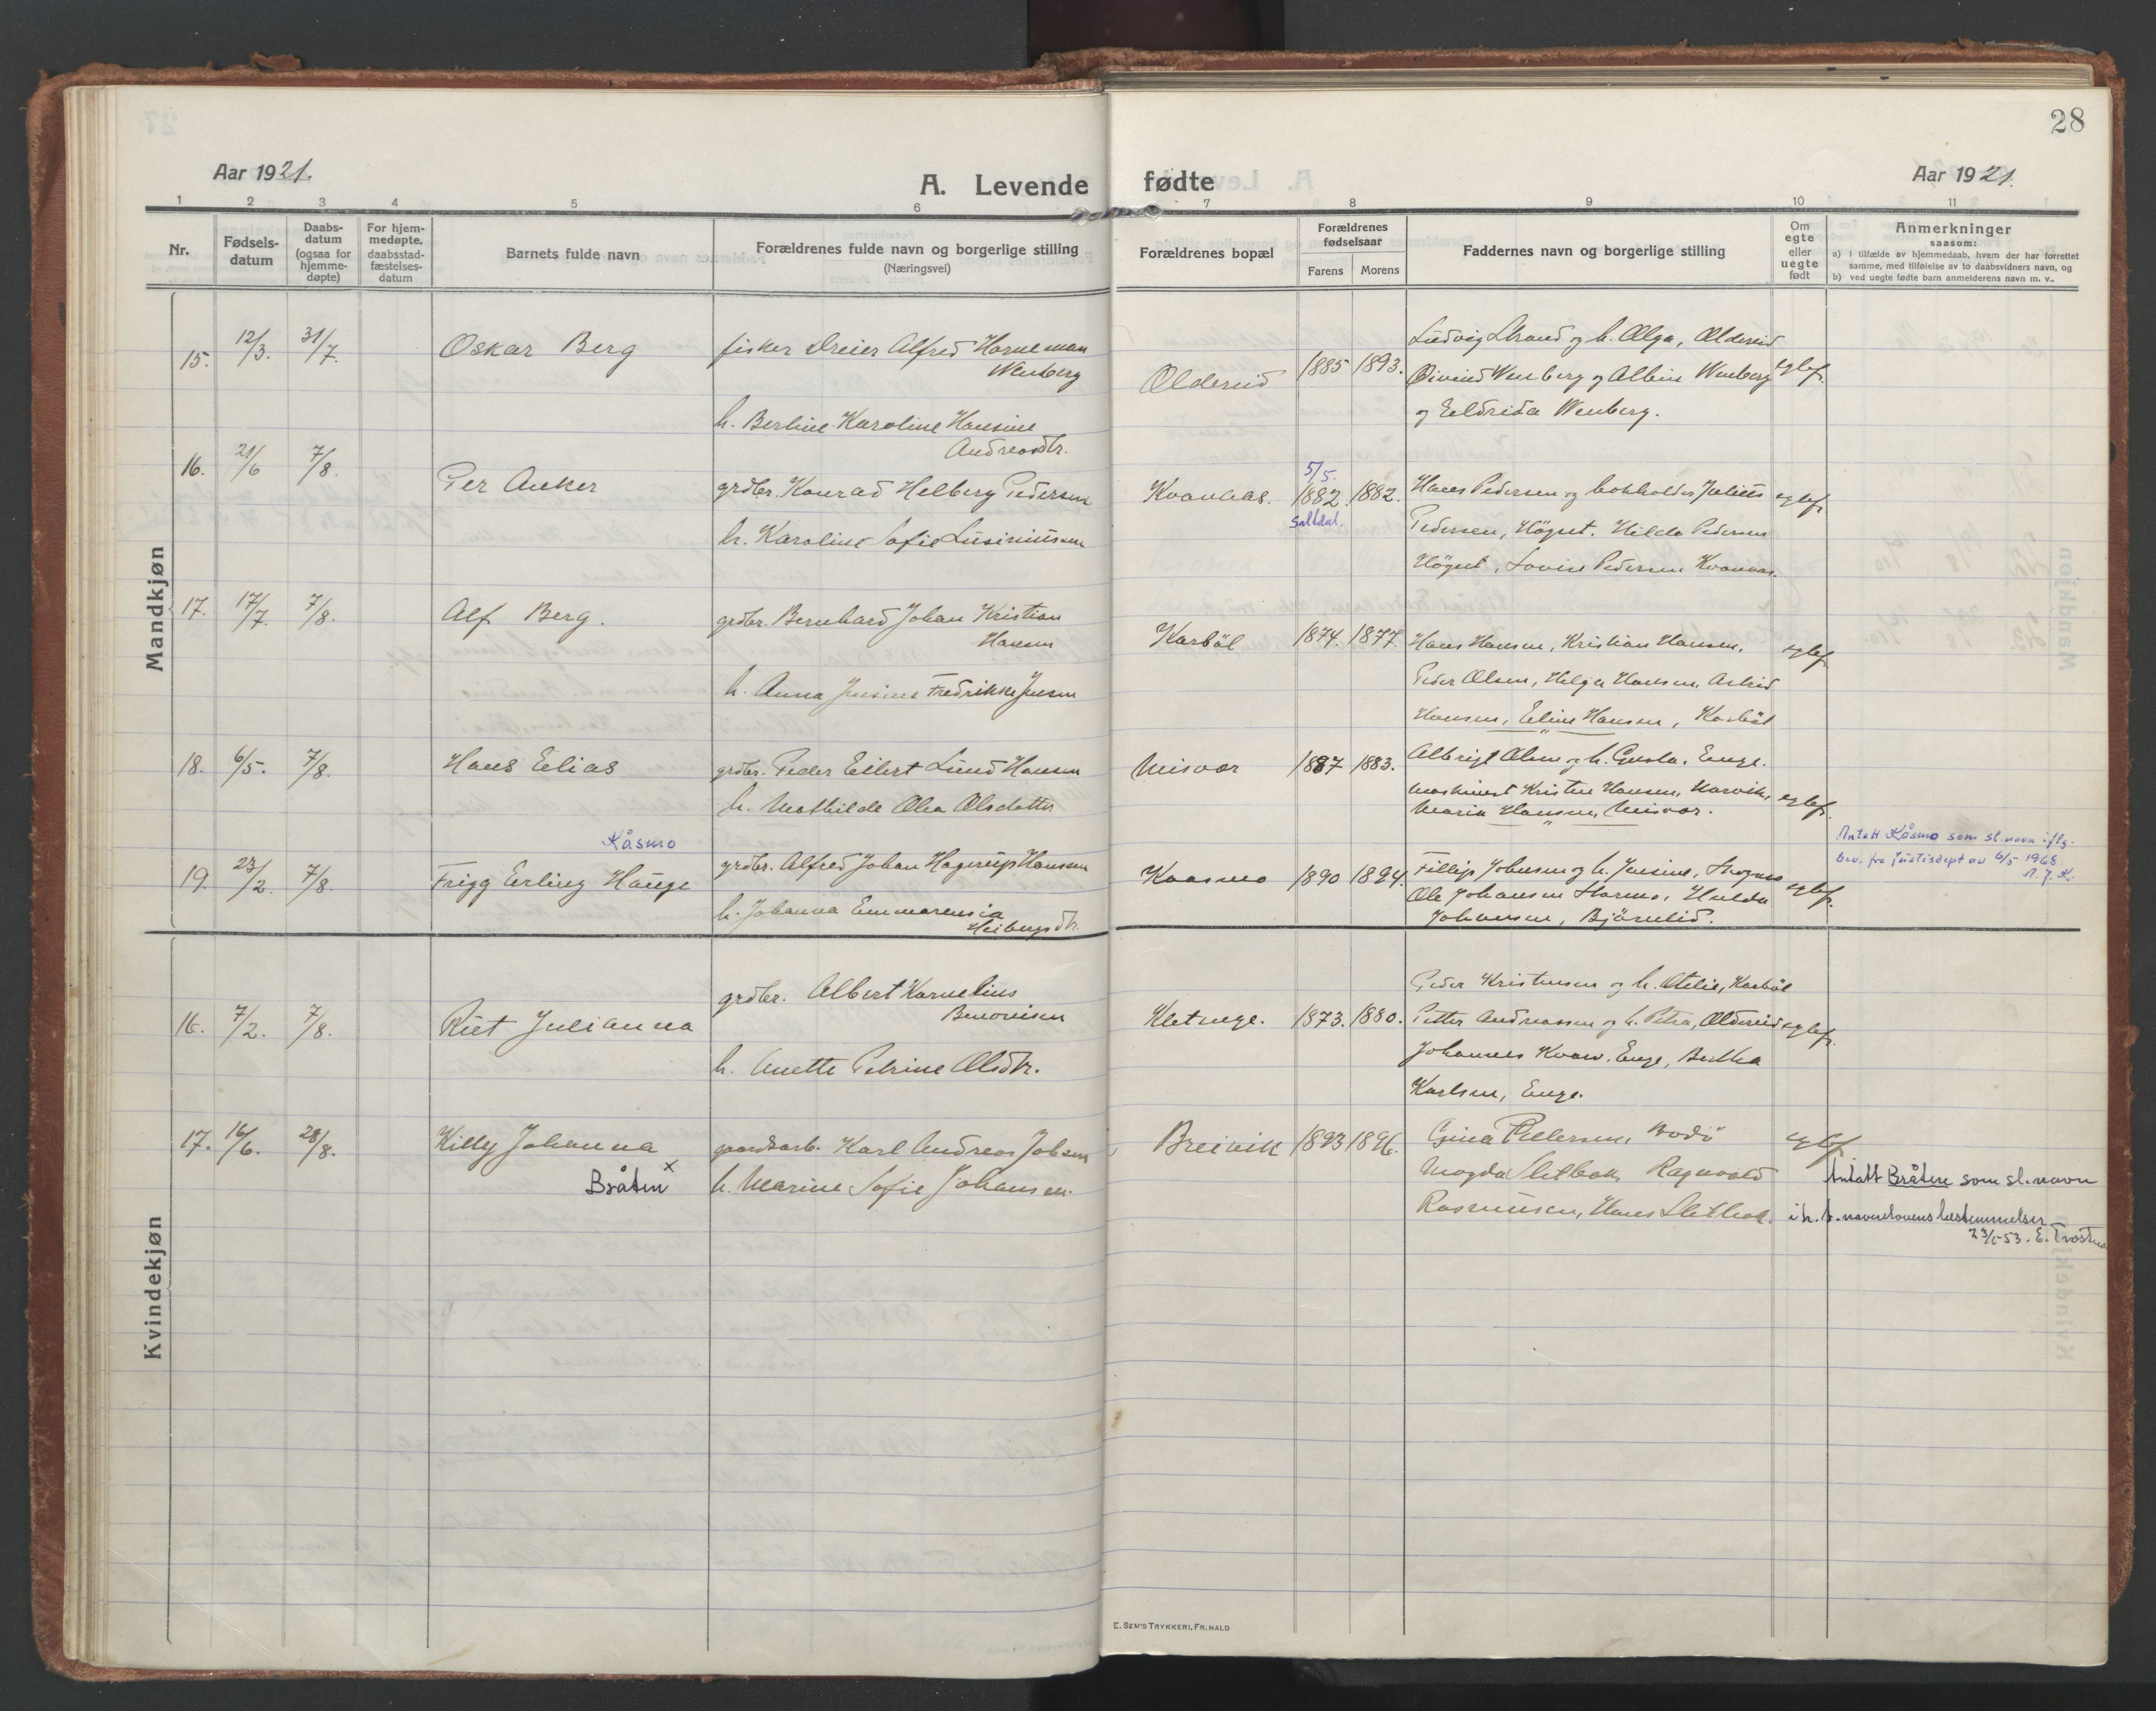 28
Aar 1921.
A. Levende fødte
Aar 1921.
1 2 3 4 5 6 7 8 9 10 11
Nr.
Fødsels-
datum
Daabs-
datum
(ogsaa for
hjemme-
døpte)
For hjem-
medøpte,
daabsstad-
fæstelses-
datum
Barnets fulde navn
Forældrenes fulde navn og borgerlige stilling
(Næringsvei)
Forældrenes bopæl
Forældrenes
fødselsaar
Farens Morens
Faddernes navn og borgerlige stilling
Om
egte
eller
uegte
født
Anmerkninger
saasom:
a) i tilfælde av hjemmedaab, hvem der har forrettet
samme, med tilføielse av to daabsvidners navn, og
b) ved uegte fødte barn anmelderens navn m. v..
Mandkjøn
15. 12/3. 31/7. Oskar Berg
fisker Dreier Alfred Horneman
Wenberg
h. Berline Karoline Hansine
Andreasdtr.
Oldereid 1885 1893.
Ludvig Strand og h. Olga, Oldereid
Øivind Wenberg og Albin Wenberg
og Eldrida Wenberg.
egtef.
16. 21/6 7/8. Per Anker
grdbr. Konrad Helberg Pedersen
h. Karoline Sofie Lusiniussen
Kvænnaas. 5/5. 1882. 1882.
Saltdal.
Hans Pedersen og bokholder Julius
Pedersen, Högset. Hilda Pedersen
Högset, Lovise Pedersen
egtef.
17. 17/7. 7/8. Alf Berg.
grdbr. Bernhard Johan Kristian
Hansen
h. Anna Jensine Fredrikke Jensen
Karböl 1874. 1877.
Hans Hansen, Kristian Hansen,
Peder Olsen, Helga Hansen, Astrid
Hansen, Eline Hansen, Karböl
egtef.
18. 6/5. 7/8. Hans Elias
grdbr. Peder Eilert Lund Hansen
h. Mathilde Olea Olsdatter
Misvær 1887 1883.
Albrigt Olsen og h. Gusta, Enge.
maskinist Kristen Hansen, Narvik,
Marie Hansen, Misvær.
egtef.
19. 23/2. 7/8. Kåsmo
Frigg Erling Hauge
grdbr. Alfred Johan Hagerup Hansen
h. Johanna Emmarensia
Heibergsdtr.
Kaasmo 1890 1894.
Fillip Johnsen og h. Jensine,
Ole Johansen Stormo, Hulda
Johansen, Björnlid.
egtef.
Antatt Kåsmo som sl.navn iflg.
bev. fra Justisdept av 6/5 1968.
A. J. K.
Kvindekjøn
16. 7/2. 7/8. Rut Julianna
grdbr. Albert Kornelius
Benonisen
h. Anette Petrine Olsdtr.
Kletenge. 1873. 1880.
Peder Kristensen og h. Otelie, Karböl
Petter Andreassen og h. Petra, Oldereid
Johannes Kvæv. Enge, Bertha
Karlsen, Enge.
egtef.
17. 16/6. 28/8. Killy Johanna
Bråten x
gaardsarb. Karl Andreas Johsen
h. Marine Sofie Johansen.
Breivik 1893 1896.
Gina Pettersen, Bodö
Magda Sletbak, Ragnvald
Rasmussen, Hans Sletbak.
egtef.
Antatt Bråten som sl.navn
i h. t. navnelovens bestemmelser
23/1-53. E. Trostnes
E. SEM'S TRYKKERI, FR.HALD